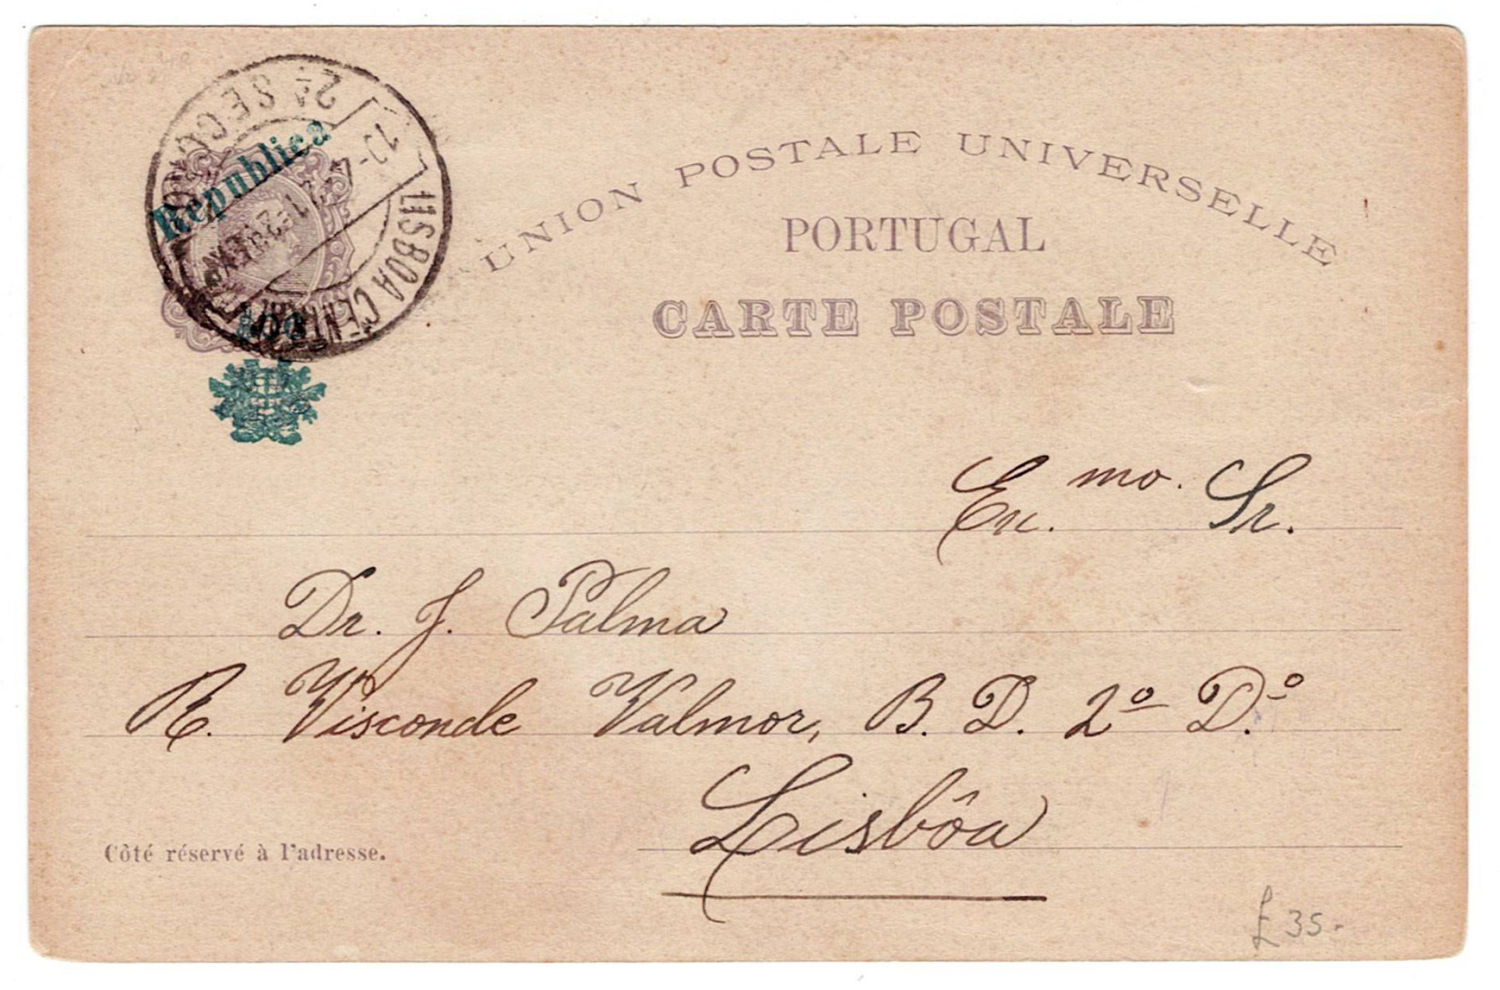 UNION POSTALE UNIVERSELLE
PORTUGAL
CARTE POSTALE
2ª SECÇÃO
LISBOA CENTRAL
Republica
Ex.mo. Sr.
Dr. J. Palma
R. Visconde Valmor, B. D. 2º D.º
Lisbôa
Côté réservé à l'adresse.
£35-